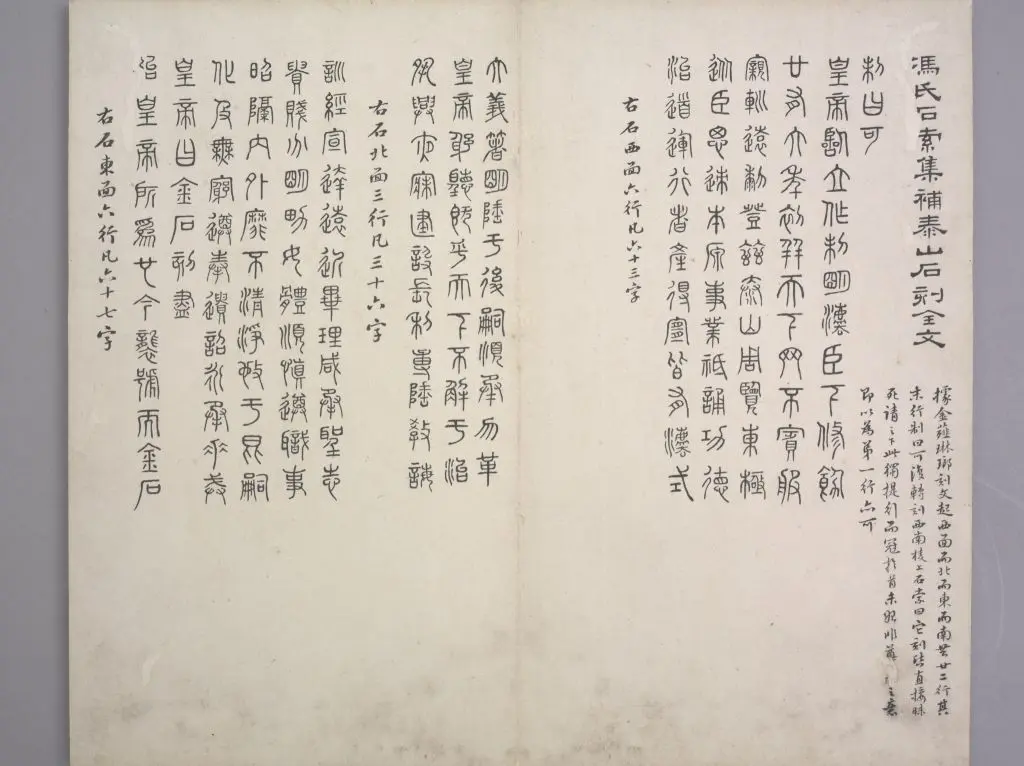 馮氏石索集補泰山石刻全文
據金薤琳瑯刻文起西面而北而東而南共廿二行其
末行制曰可復轉刻西南棱上石索曰它刻皆直接昧
死請之下此獨提行而冠於首未始非舊之意
即以為第一行亦可
制曰可
皇帝臨立作制明灋臣下修飭
廿有六年初并天下罔不賓服
寴軓遠黎登茲泰山周覽東極
從臣思迹本原事業祗誦功德
治道運行者產得宜皆有灋式
右石西面六行凡六十三字
大義箸明陲于後嗣順承勿革
皇帝躬聽既平天下不解于治
夙興夜寐建設長利專隆教誨
右石北面三行凡三十六字
訓經宣達遠近畢理咸承聖志
貴賤分明男女體順慎遵職事
昭隔內外靡不清淨施于昆嗣
化及無窮遵奉遺詔永承重戒
皇帝曰金石刻盡
始皇帝所為也今襲號而金石
右石東面六行凡六十七字